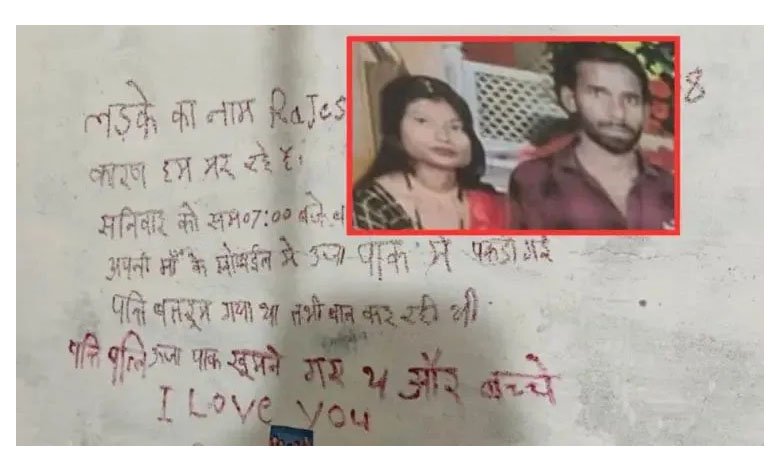 लड़के का नाम RaJes 8
कारण हम मर रहे है।
सनिवार को सम07:00 बजे
अपनी माँ के मोबाईल मे उर्जा पार्क में पकडी गई
पत्ति बातरूम गया था तभी बात कर रही थी
पत्ति पत्नि उर्जा पार्क घूमने गए थ और बच्चे
I Love you